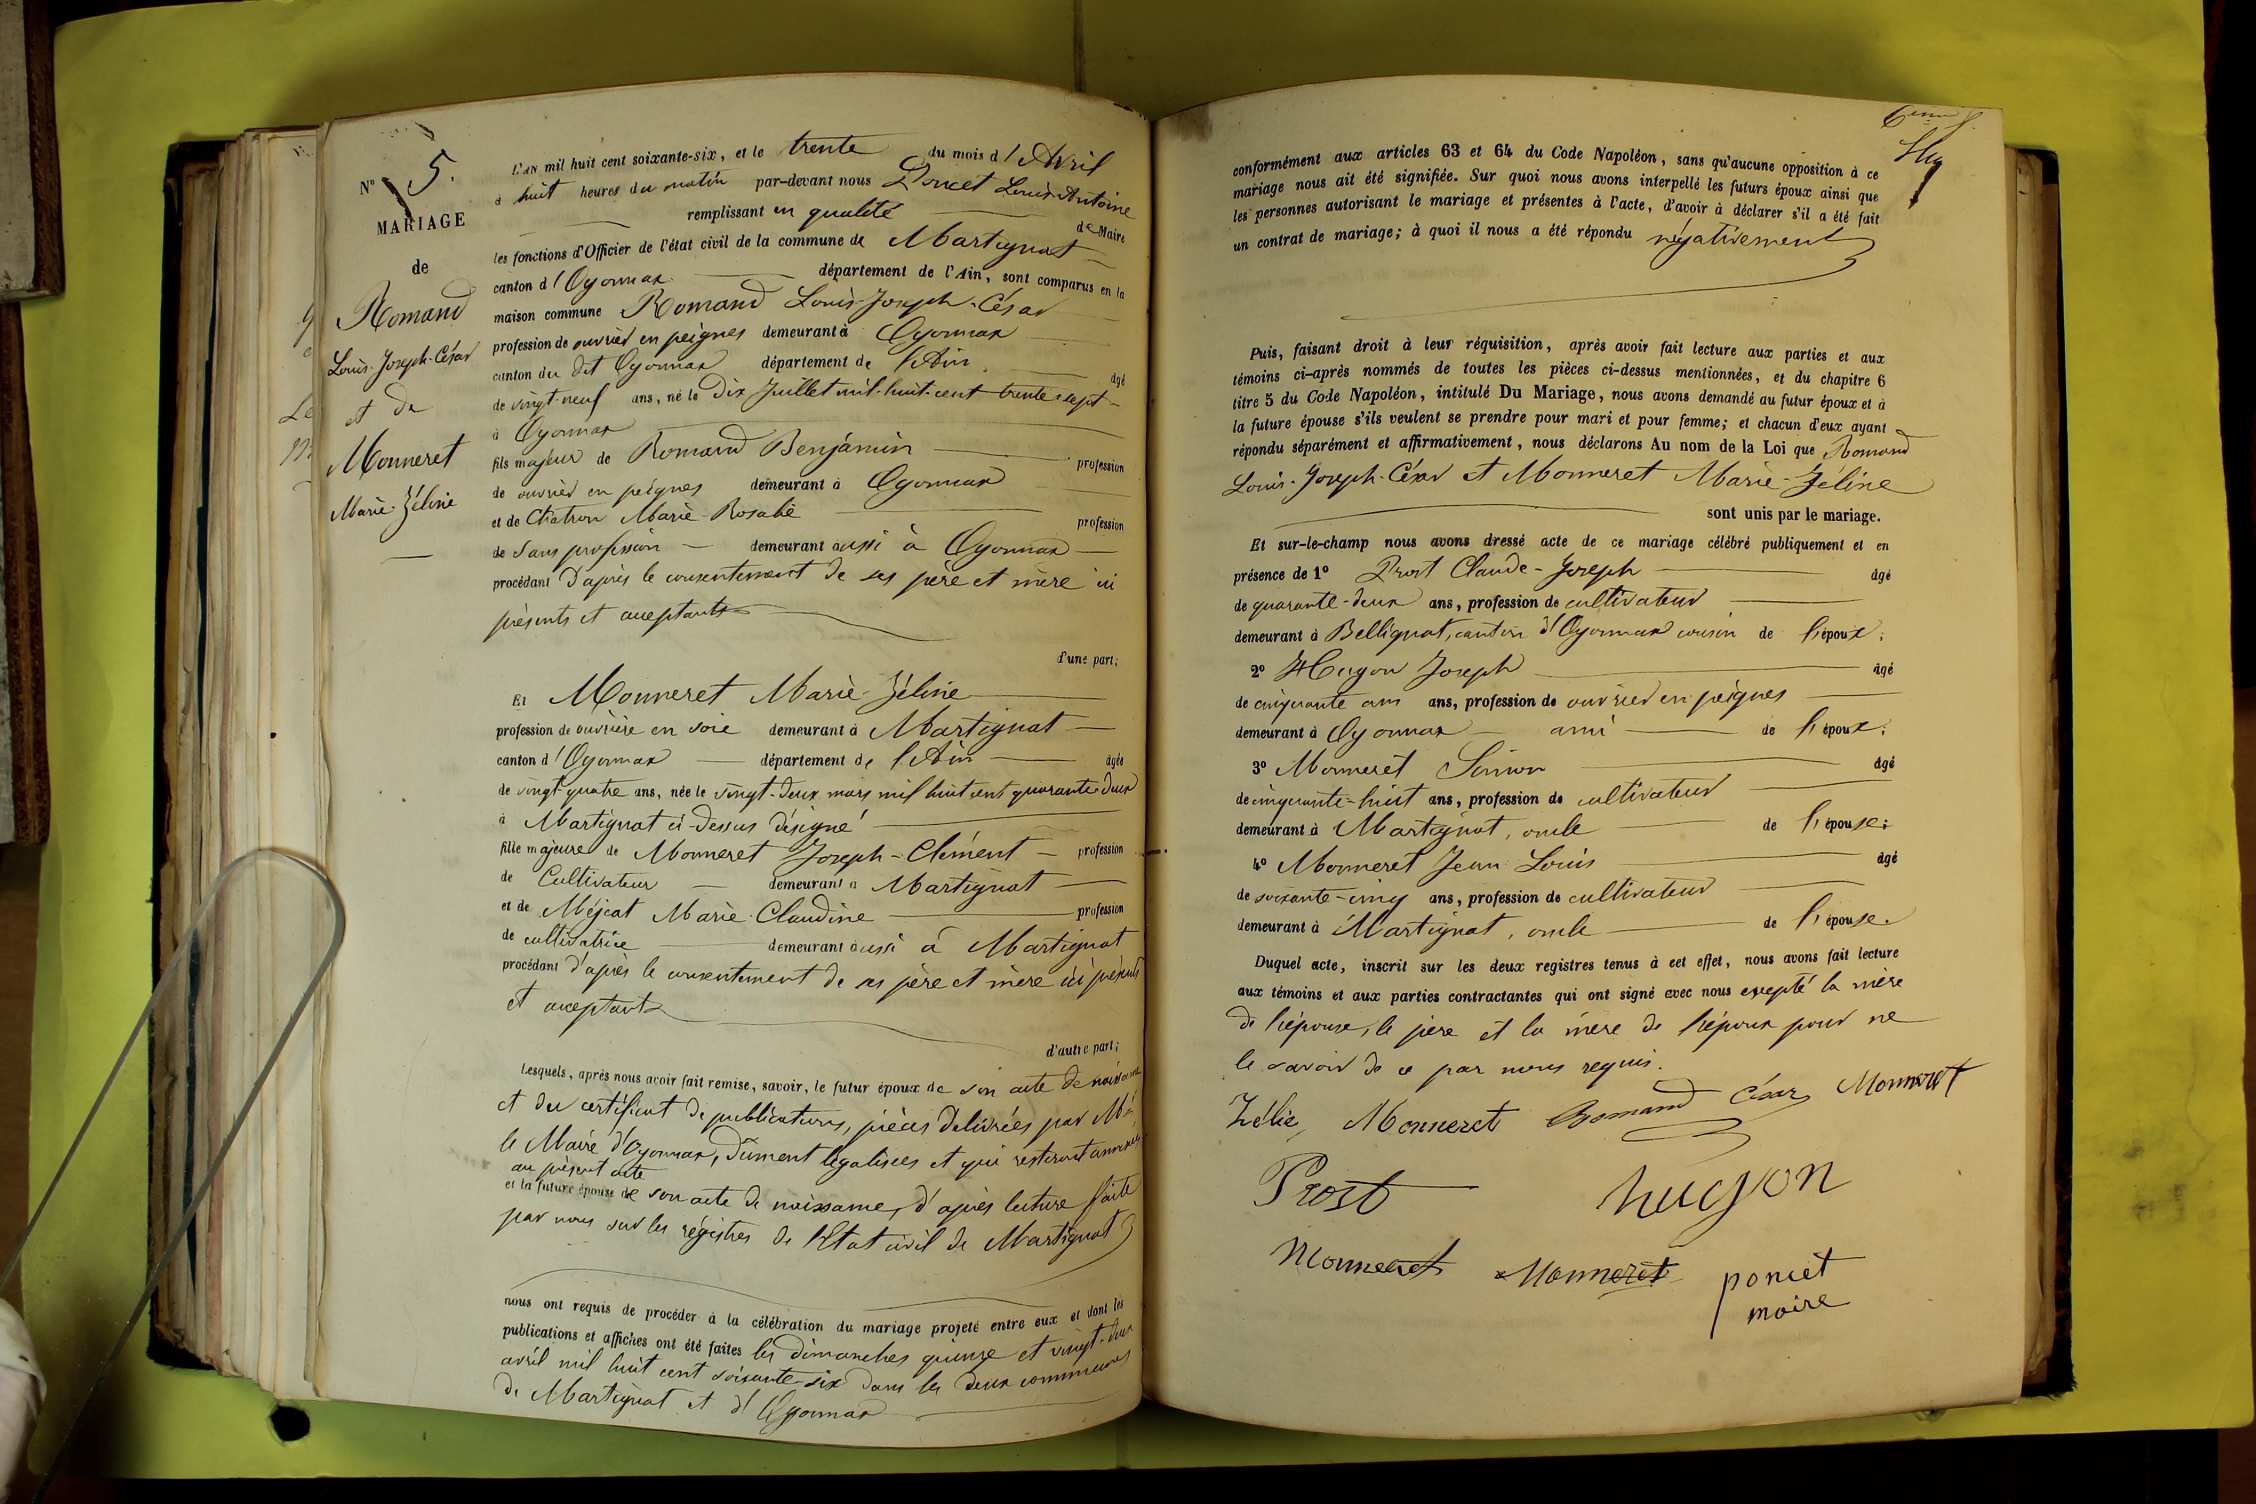 N° 5.
MARIAGE
de
Romand
Louis-Joseph-César
et de
Monneret
Marie-Zéline
L'AN mil huit cent soixante-six, et le trente du mois d'Avril
à huit heures du matin par-devant nous Poncet Louis-Antoine
remplissant en qualité de Maire
les fonctions d'Officier de l'état civil de la commune de Martignat
canton d'Oyonnax département de l'Ain, sont comparus en la
maison commune Romand Louis-Joseph-César
profession de ouvrier en peignes demeurant à Oyonnax
canton du dit Oyonnax département de l'Ain âgé
de vingt-neuf ans, né le dix Juillet mil-huit-cent-trente-sept
à Oyonnax
fils majeur de Romand Benjamin profession
de ouvrier en peignes demeurant à Oyonnax
et de Chatron Marie-Rosalie profession
de sans profession demeurant aussi à Oyonnax
procédant d'après le consentement de ses père et mère ici
présents et acceptants
d'une part;
Et Monneret Marie-Zéline
profession de ouvrière en soie demeurant à Martignat
canton d'Oyonnax département de l'Ain âgée
de vingt-quatre ans, née le vingt-deux mars mil huit cent quarante-deux
à Martignat ci-dessus désigné
fille majeure de Monneret Joseph-Clément profession
de Cultivateur demeurant à Martignat
et de Méjeat Marie-Claudine profession
de cultivatrice demeurant aussi à Martignat
procédant d'après le consentement de ses père et mère ici présents
et acceptants
d'autre part;
Lesquels, après nous avoir fait remise, savoir, le futur époux de son acte de naissance
et du certificat de publications, pièces délivrées par Mr
le Maire d'Oyonnax, dûment légalisées et qui resteront annexées
au présent acte
et la future épouse de son acte de naissance, d'après lecture faite
par nous sur les régistres de l'Etat civil de Martignat
nous ont requis de procéder à la célébration du mariage projeté entre eux et dont les
publications et affiches ont été faites les dimanches quinze et vingt-deux
avril mil huit cent soixante-six dans les deux communes
de Martignat et d'Oyonnax
conformément aux articles 63 et 64 du Code Napoléon, sans qu'aucune opposition à ce
mariage nous ait été signifiée. Sur quoi nous avons interpellé les futurs époux ainsi que
les personnes autorisant le mariage et présentes à l'acte, d'avoir à déclarer s'il a été fait
un contrat de mariage; à quoi il nous a été répondu négativement
Puis, faisant droit à leur réquisition, après avoir fait lecture aux parties et aux
témoins ci-après nommés de toutes les pièces ci-dessus mentionnées, et du chapitre 6
titre 5 du Code Napoléon, intitulé Du Mariage, nous avons demandé au futur époux et à
la future épouse s'ils veulent se prendre pour mari et pour femme; et chacun d'eux ayant
répondu séparément et affirmativement, nous déclarons Au nom de la Loi que Romand
Louis-Joseph-César et Monneret Marie-Zéline
sont unis par le mariage.
Et sur-le-champ nous avons dressé acte de ce mariage célébré publiquement et en
présence de 1° Prost Claude-Joseph âgé
de quarante-deux ans, profession de cultivateur
demeurant à Bellignat, canton d'Oyonnax cousin de l'époux;
2° Hugon Joseph âgé
de cinquante ans ans, profession de ouvrier en peignes
demeurant à Oyonnax ami de l'époux;
3° Monneret Simon âgé
de cinquante-huit ans, profession de cultivateur
demeurant à Martignat, oncle de l'épouse;
4° Monneret Jean Louis âgé
de soixante-cinq ans, profession de cultivateur
demeurant à Martignat, oncle de l'épouse.
Duquel acte, inscrit sur les deux registres tenus à cet effet, nous avons fait lecture
aux témoins et aux parties contractantes qui ont signé avec nous excepté la mère
de l'épouse, le père et la mère de l'époux pour ne
le savoir de ce par nous requis.
Zélie Monneret Romand César Monneret
Prost hugon
Monneret Monneret poncet
maire